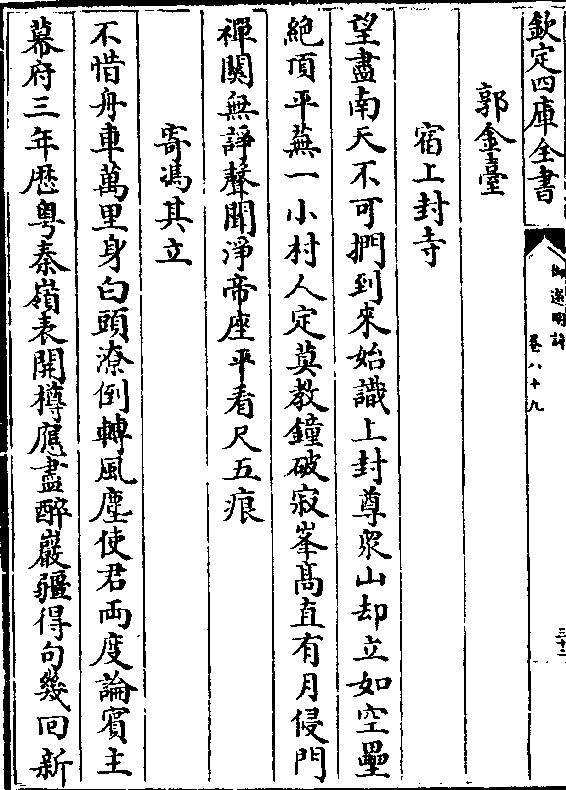 欽定四庫全書
御選明詩
卷八十九
三十二
郭金臺
宿上封寺
望盡南天不可捫到來始識上封尊衆山却立如空壘
絶頂平蕪一小村人定莫教鐘破寂峯髙直有月侵門
禪關無諍聲聞淨帝座平看尺五痕
寄馮其立
不惜舟車萬里身白頭潦倒轉風塵使君兩度論賓主
幕府三年歴粤秦嶺表開樽應盡醉巖疆得句幾回新